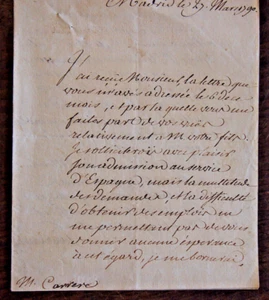 Madrid le 27 Mars 90.
J'ai reçu Monsieur, la lettre que
vous m'avés adressée le 6 de ce
mois, et par la quelle vous me
faites part de vos vues
relativement à M. votre fils.
Je solliciterois avec plaisir
son admission au service
d'Espagne, mais la multitude
des demandes, et la difficulté
d'obtenir des emplois ne
me permettant pas de vous
donner aucune esperance
à cet égard, je me bornerai
M. Carrere